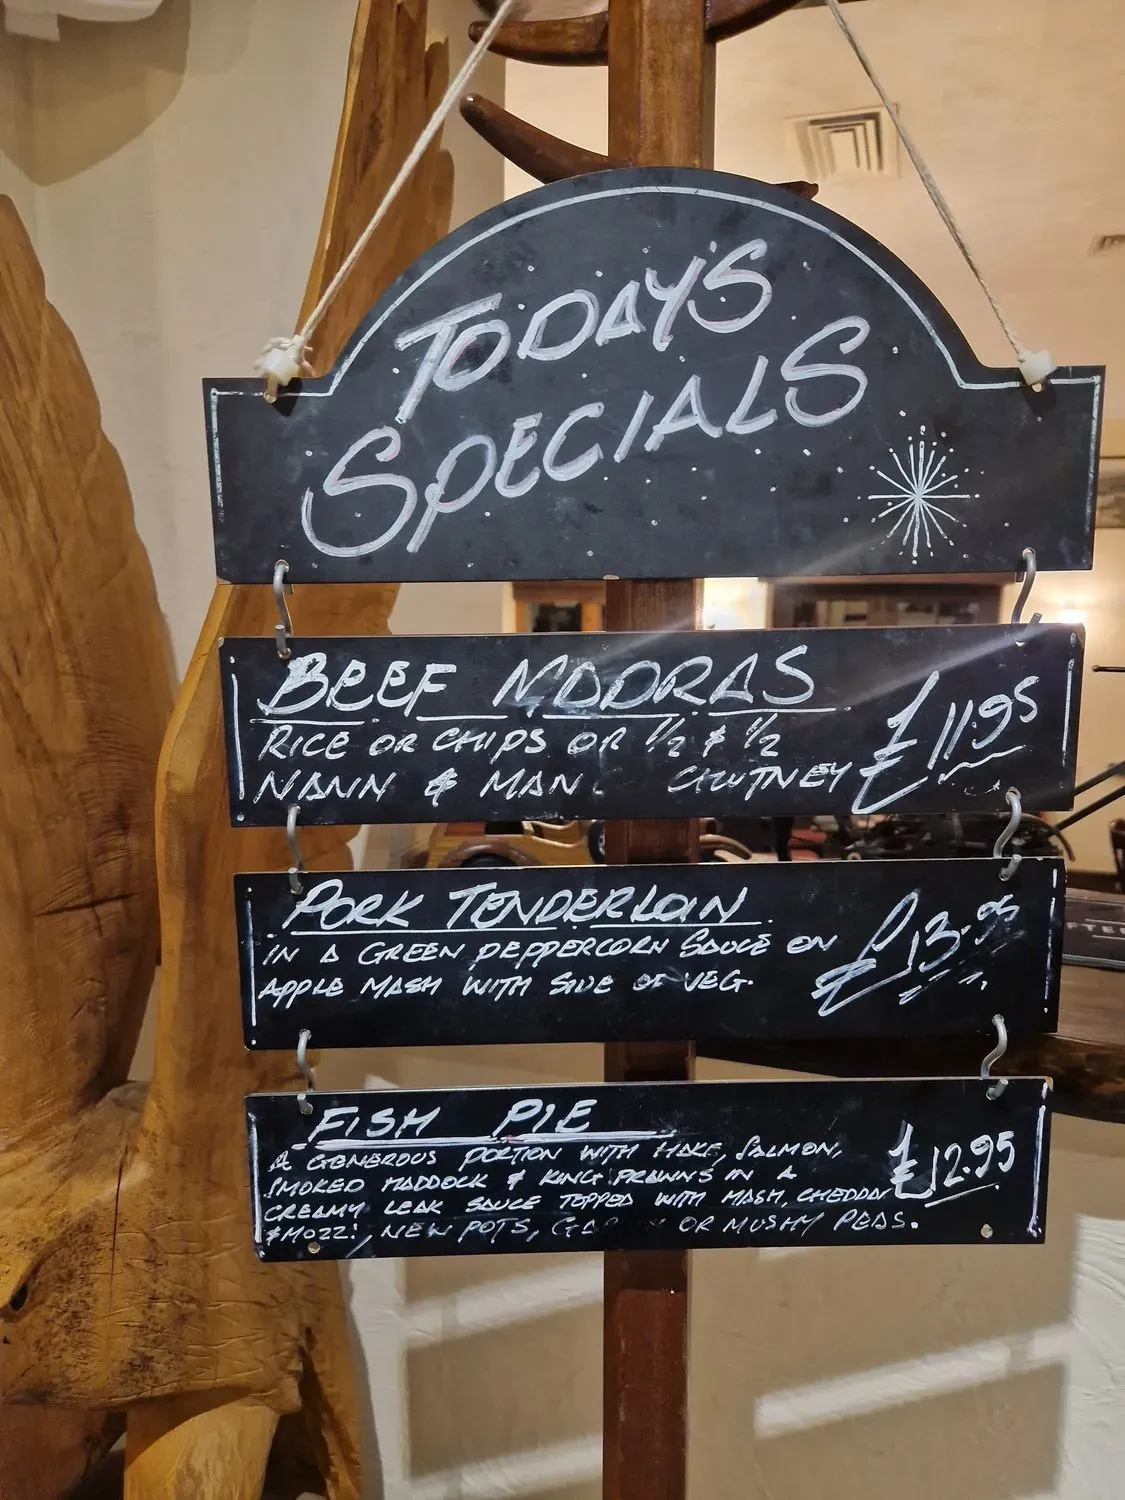 TODAY'S
SPECIALS
BEEF MADRAS
RICE OR CHIPS OR 1/2 & 1/2
NANN & MAN CHUTNEY
£11.95
PORK TENDERLOIN
IN A GREEN PEPPERCORN SAUCE ON
APPLE MASH WITH SIDE OF VEG.
£13.95
FISH PIE
A GENEROUS PORTION WITH HAKE, SALMON,
SMOKED HADDOCK & KING PRAWNS IN A
CREAMY LEAK SAUCE TOPPED WITH MASH, CHEDDAR
& MOZZ!, NEW POTS, OR MUSHY PEAS.
£12.95